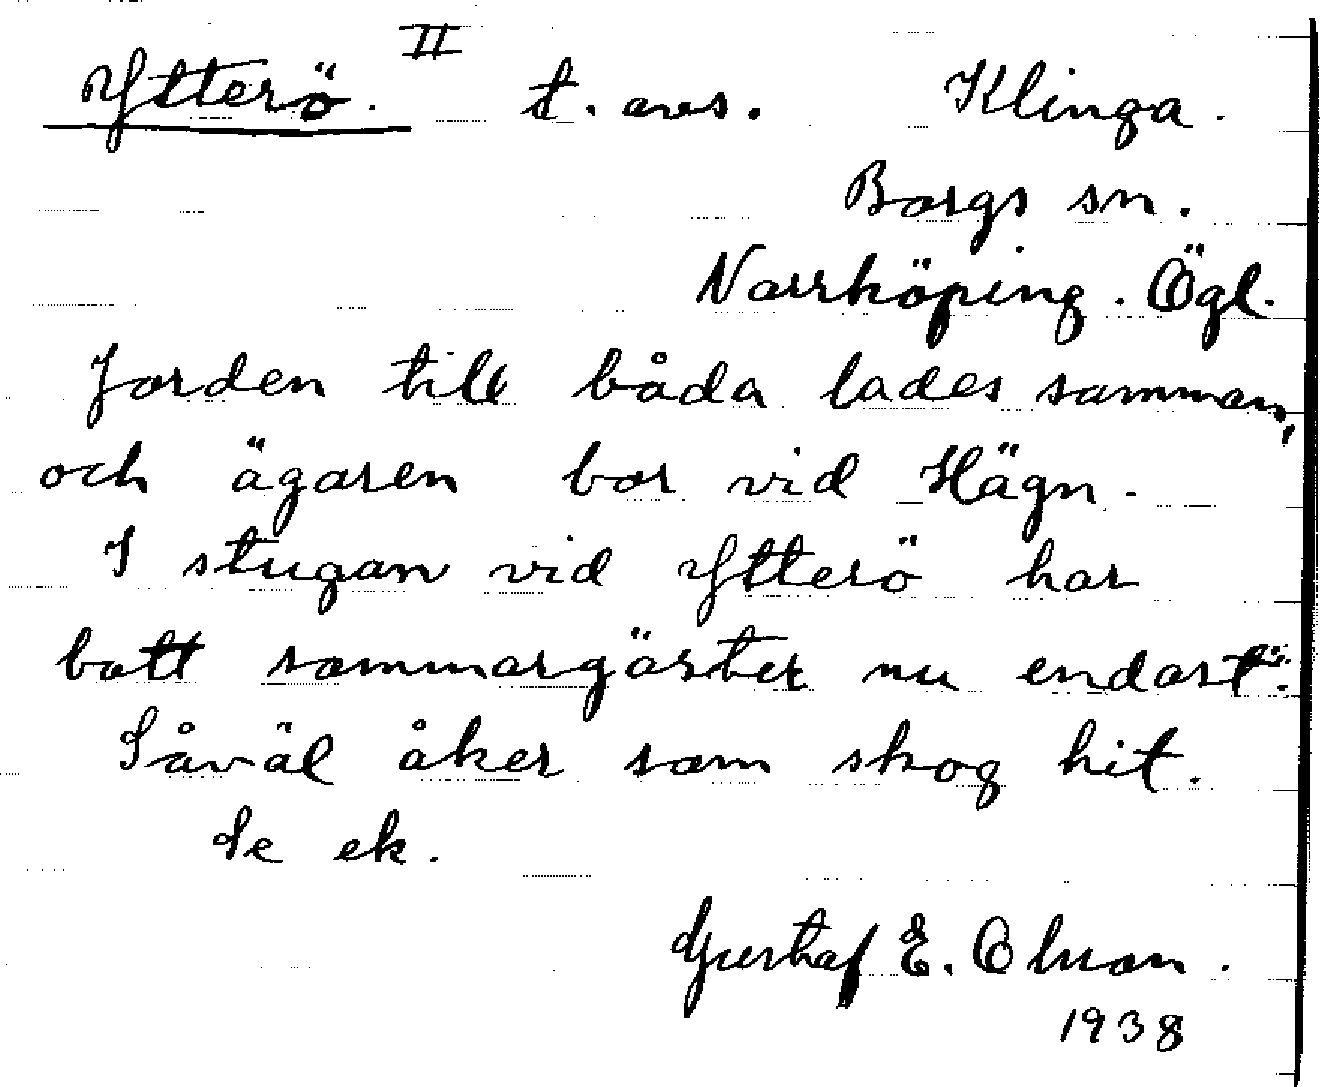 Ytterö. II t. avs. Klinga.
Borgs sn.
Norrköping. Ögl.
Jorden till båda lades samman,
och ägaren bor vid Hägn.
I stugan vid Ytterö har
bott sommargäster nu endast
Såväl åker som skog hit.
Se ek.
Gustaf E. Olson.
1938